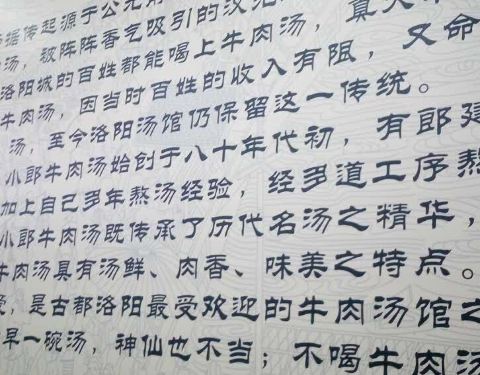 据传起源于公元前
汤，被阵阵香气吸引的汉
洛阳城的百姓都能喝上牛肉汤，真
牛肉汤，因当时百姓的收入有限，又命
汤，至今洛阳汤馆仍保留这一传统。
小郎牛肉汤始创于八十年代初，有郎建
加上自己多年熬汤经验，经多道工序熬
小郎牛肉汤既传承了历代名汤之精华，
牛肉汤具有汤鲜、肉香、味美之特点。
，是古都洛阳最受欢迎的牛肉汤馆之
早一碗汤，神仙也不当；不喝牛肉汤